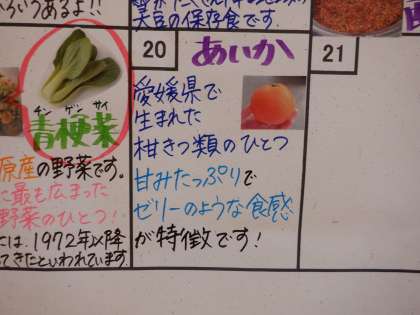 いろいろあるよ!!
大豆の保存食です。
チンゲンサイ
青梗菜
原産の野菜です。
に最も広まった
野菜のひとつ!
には、1972年以降
てきたといわれています。
20
あいか
愛媛県で
生まれた
柑きつ類のひとつ
甘みたっぷりで
ゼリーのような食感
が特徴です!
21